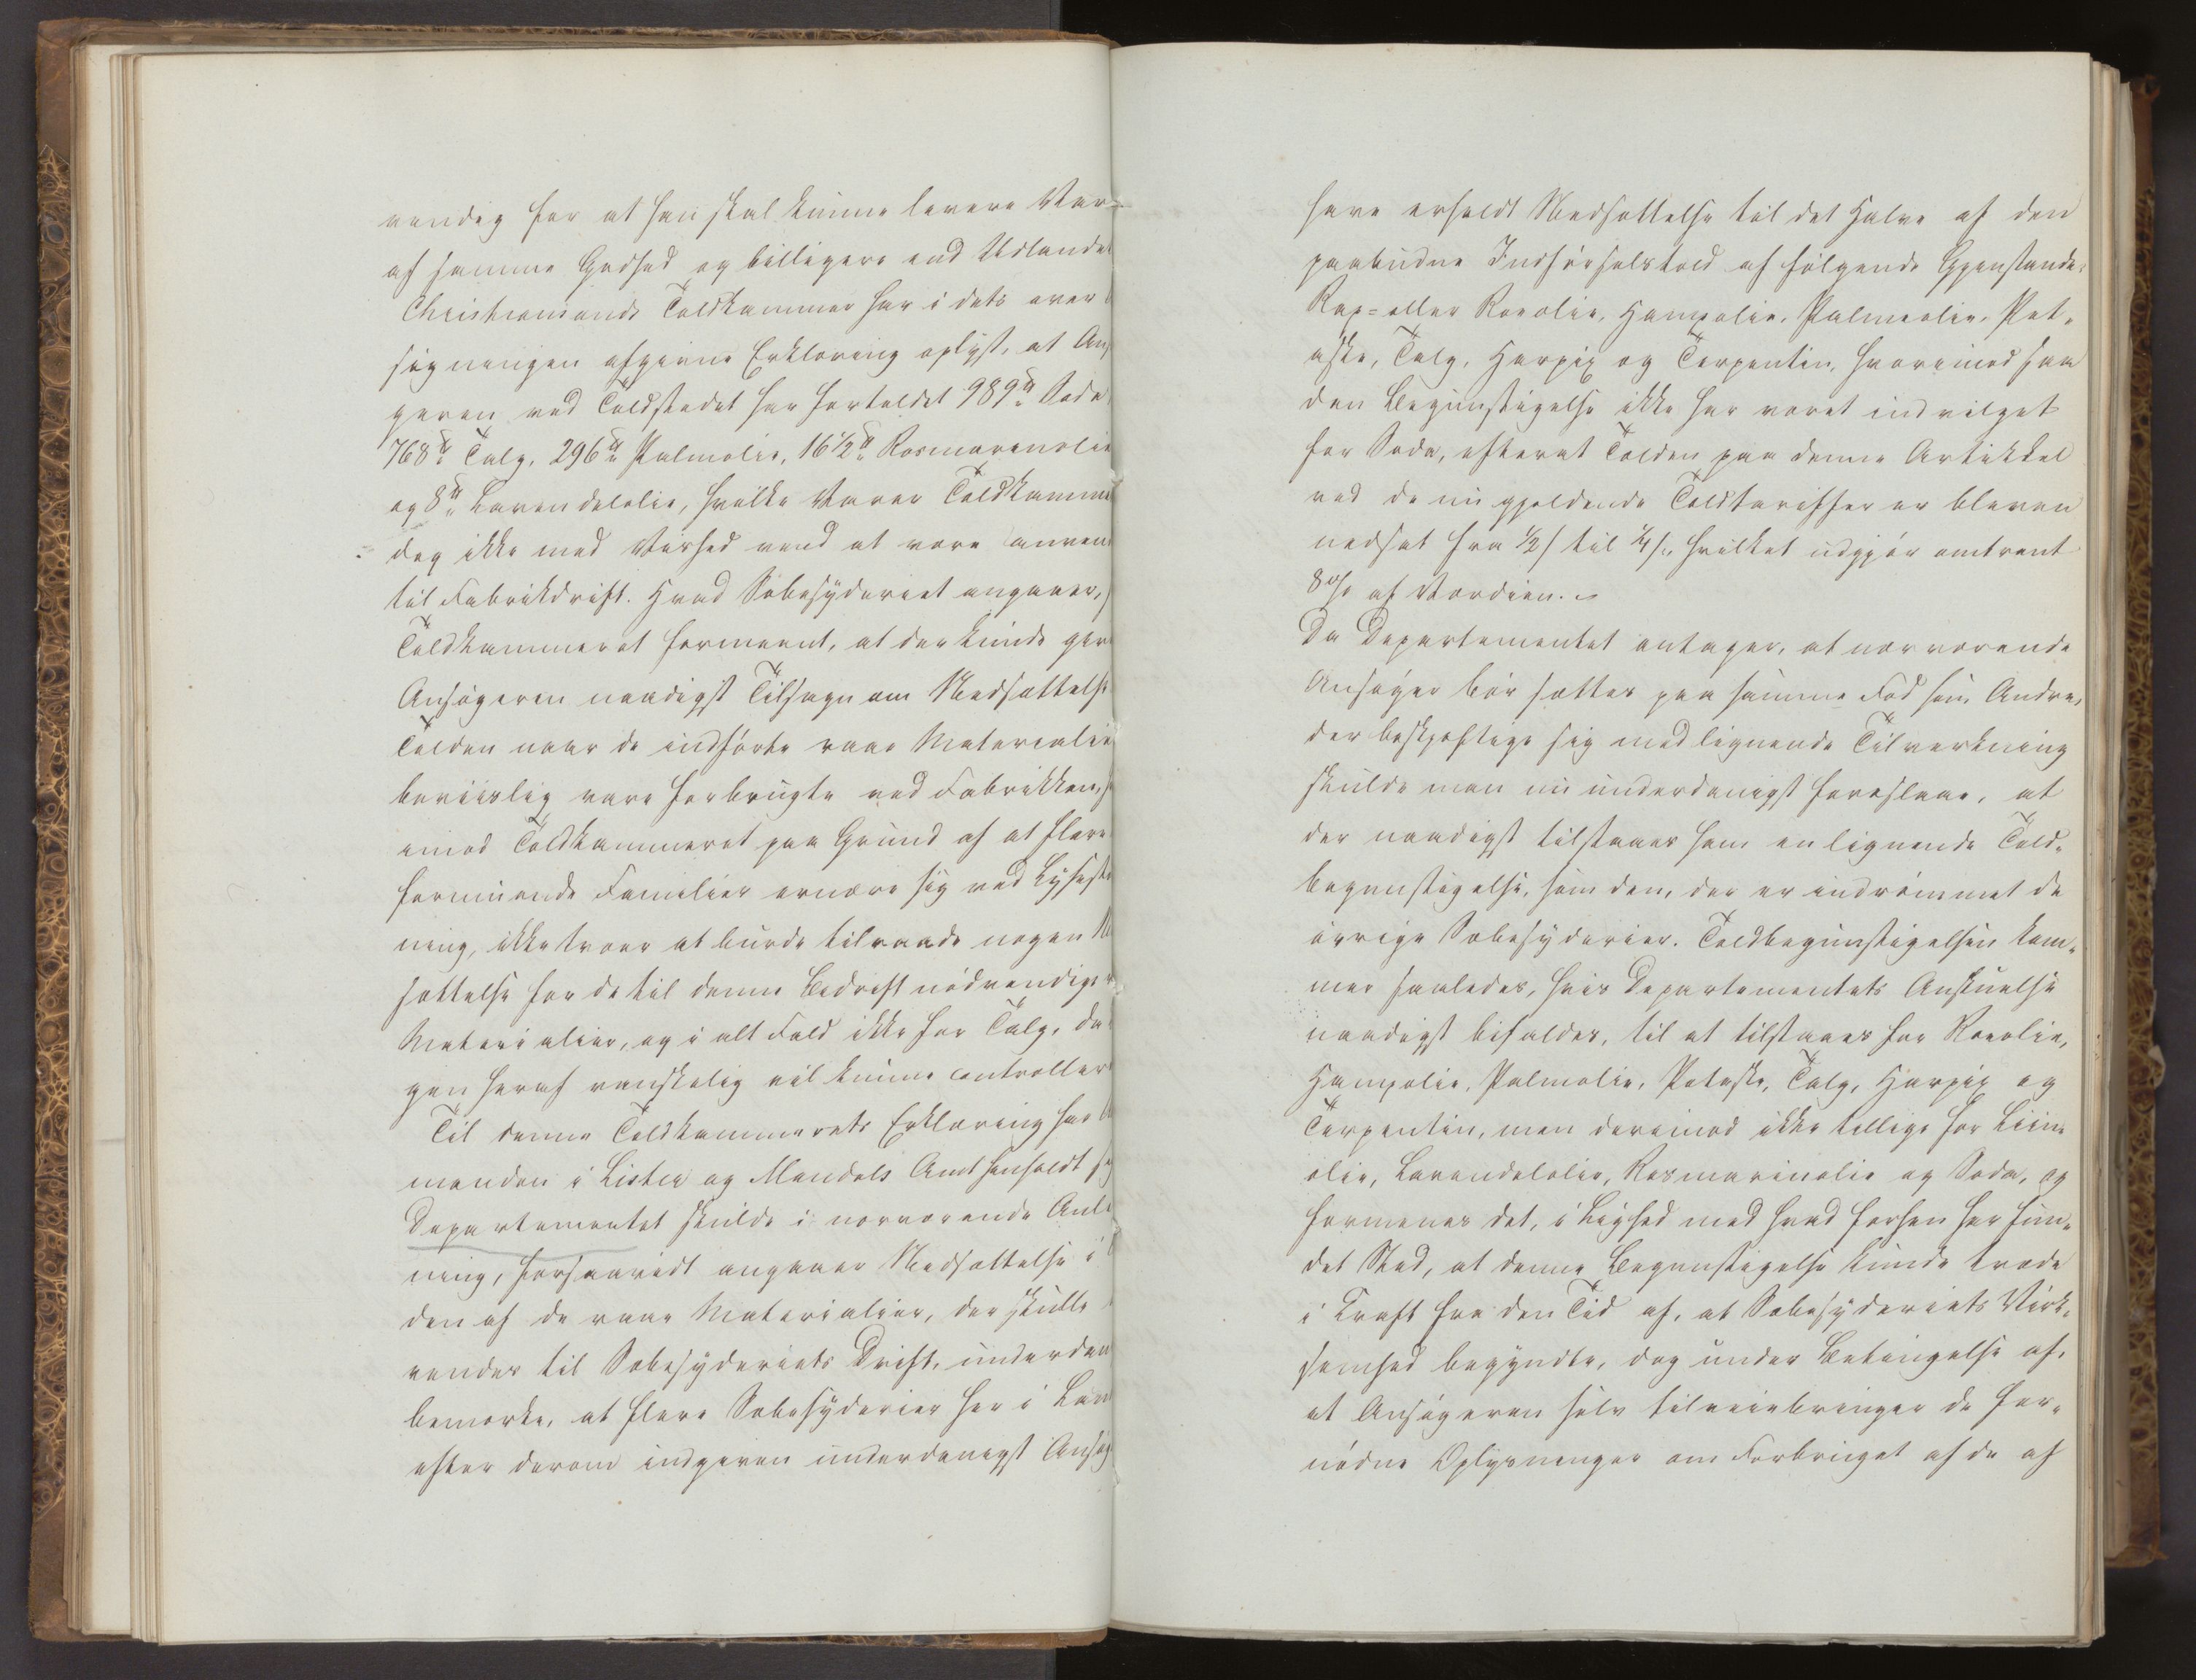 vendig for at han skal kunne levere Var-
af samme Godhed og billigere end Udlandet
Christiansands Toldkammer har i dets over
Ansøgningen afgivne Erklæring oplyst, at Ansø
geren ved Toldstedet har fortoldet 989 ℔ Soda
768 ℔ Talg, 296 ℔ Palmolie, 16½ ℔ Rosmarinolie
og 8 ℔ Lavendelolie, hvilke Varer Toldkamme
dog ikke med Vished veed at være anven
til Fabrikdrift. Hvad Sæbesyderiet angaaer,
Toldkammeret formeent, at der kunde give
Ansøgeren naadigst Tilsagn om Nedsættelse
Tolden naar de indførte raae Materialie
beviislig vare forbrugte ved Fabrikken, h
imod Toldkammeret paa Grund af at flere
formuende Familier ernære sig ved Lysestø
ning, ikke troer at burde tilraade nogen N
sættelse for de til denne Bedrift nødvendige
Materialier, og i alt Fald ikke for Talg, da
gen heraf vanskelig vil kunne controller
Til denne Toldkammerets Erklæring har A
manden i Lister og Mandals Amt henholdt sig
Departementet skulde i nærværende Anl
ning, forsaavidt angaaer Nedsættelse i
den af de raae Materialier, der skulle
vendes til Sæbesyderiets Drift, underdan
bemærke, at flere Sæbesyderier her i Lan
efter derom indgiven underdanigst Ansøg
have erholdt Nedsættelse til det Halve af den
paabudne Indførselstold af følgende Gjenstande:
Rap- eller Roeolie, Hampolie, Palmeolie, Pot-
aske, Talg, Harpix og Terpentin, hvorimod saa
dan Begunstigelse ikke har været indvilget
for Soda, efterat Tolden paa denne Artikkel
ved de nu gjældende Toldtariffer er bleven
nedsat fra ½ s til ¼ s, hvilket udgjør omtrent
8 % af Værdien.
Da Departementet antager, at nærværende
Ansøger bør sættes paa samme Fod som Andre,
der beskjæftige sig med lignende Tilvirkning
skulde man nu underdanigst foreslaae, at
der naadigst tilstaaes ham en lignende Told-
begunstigelse, som den, der er indrømmet de
øvrige Sæbesyderier. Toldbegunstigelsen kom-
mer saaledes, hvis Departementets Anskuelse
naadigst bifaldes, til at tilstaaes for Roeolie,
Hampolie, Palmolie, Potaske, Talg, Harpix og
Terpentin, men derimod ikke tillige for Liin-
olie, Lavendelolie, Rosmarinolie og Soda, og
formenes det, i Liighed med hvad forhen har fun-
det Sted, at denne Begunstigelse kunde træde
i Kraft fra den Tid af, at Sæbesyderiets Virk-
somhed begyndte, dog under Betingelse af,
at Ansøgeren selv tilveiebringer de for-
nødne Oplysninger om Forbruget af de af